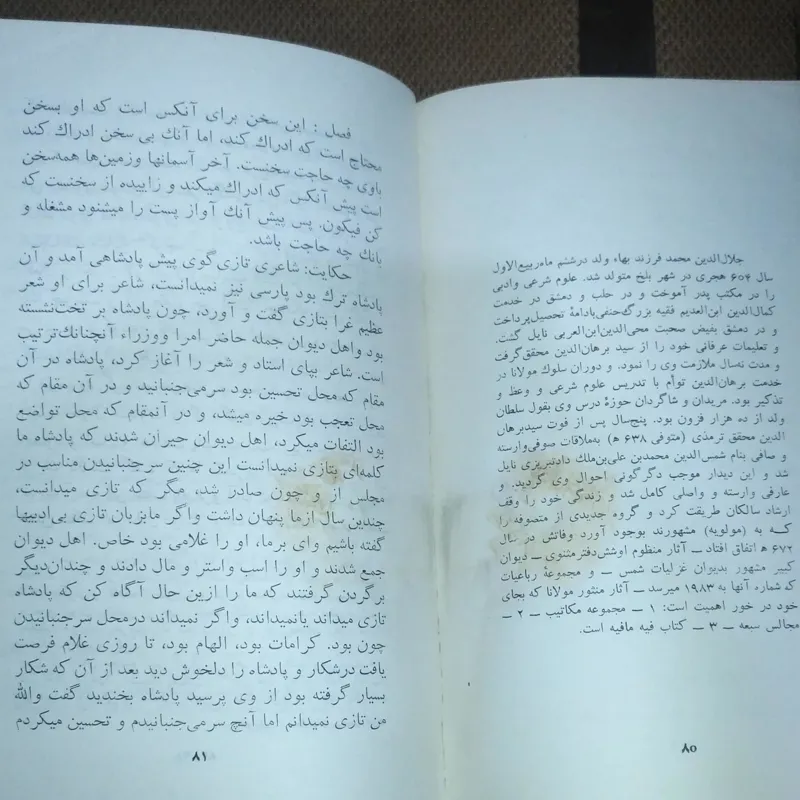 جلال‌الدین محمد فرزند بهاء ولد درششم ماه‌ربیع‌الاول
سال ۶۰۴ هجری در شهر بلخ متولد شد. علوم شرعی وادبی
را در مکتب پدر آموخت و در حلب و دمشق در خدمت
کمال‌الدین ابن‌العدیم فقیه بزرگ‌حنفی‌بادامهٔ تحصیل‌پرداخت
و در دمشق بفیض صحبت محی‌الدین‌ابن‌العربی نایل گشت.
و تعلیمات عرفانی خود را از سید برهان‌الدین محقق‌گرفت
و مدت نه‌سال ملازمت وی را نمود. و دوران سلوك مولانا در
خدمت برهان‌الدین توأم با تدریس علوم شرعی و وعظ و
تذکیر بود. مریدان و شاگردان حوزهٔ درس وی بقول سلطان
ولد از ده هزار فزون بود. پنج‌سال پس از فوت سیدبرهان
الدین محقق ترمذی (متوفی ۶۳۸ ه‍) به‌ملاقات صوفی‌وارسته
و صافی بنام شمس‌الدین محمدبن علی‌بن‌ملك دادتبریزی نایل
شد و این دیدار موجب دگرگونی احوال وی گردید. و
عارفی وارسته و واصلی کامل شد و زندگی خود را وقف
ارشاد سالکان طریقت کرد و گروه جدیدی از متصوفه را
که به (مولویه) مشهورند بوجود آورد وفاتش در سال
۶۷۲ ه‍ اتفاق افتاد ــ آثار منظوم اوشش‌دفترمثنوی ــ دیوان
کبیر مشهور بدیوان غزلیات شمس ــ و مجموعهٔ رباعیات
که شماره آنها به ۱۹۸۳ میرسد ــ آثار منثور مولانا که بجای
خود در خور اهمیت است: ۱ ــ مجموعه مکاتیب ــ ۲ ــ
مجالس سبعه ــ ۳ ــ کتاب فیه مافیه است.
۸۰
فصل : این سخن برای آنکس است که او بسخن
محتاج است که ادراك کند، اما آنك بی سخن ادراك کند
باوی چه حاجت سخنست. آخر آسمانها وزمین‌ها همه‌سخن
است پیش آنکس که ادراك میکند و زاییده از سخنست که
کن فیکون. پس پیش آنك آواز پست را میشنود مشغله و
بانك چه حاجت باشد.
حکایت: شاعری تازی‌گوی پیش پادشاهی آمد و آن
پادشاه ترك بود پارسی نیز نمیدانست، شاعر برای او شعر
عظیم غرا بتازی گفت و آورد، چون پادشاه بر تخت‌نشسته
بود واهل دیوان جمله حاضر امرا ووزراء آنچنانك‌ترتیب
است. شاعر بپای استاد و شعر را آغاز کرد، پادشاه در آن
مقام که محل تحسین بود سرمی‌جنبانید و در آن مقام که
محل تعجب بود خیره میشد، و در آنمقام که محل تواضع
بود التفات میکرد، اهل دیوان حیران شدند که پادشاه ما
کلمه‌ای بتازی نمیدانست این چنین سرجنبانیدن مناسب در
مجلس از و چون صادر شد، مگر که تازی میدانست،
چندین سال ازما پنهان داشت واگر مابزبان تازی بی‌ادبیها
گفته باشیم وای برما، او را غلامی بود خاص. اهل دیوان
جمع شدند و او را اسب واستر و مال دادند و چندان‌دیگر
برگردن گرفتند که ما را ازین حال آگاه کن که پادشاه
تازی میداند یانمیداند، واگر نمیداند درمحل سرجنبانیدن
چون بود. کرامات بود، الهام بود، تا روزی غلام فرصت
یافت درشکار و پادشاه را دلخوش دید بعد از آن که شکار
بسیار گرفته بود از وی پرسید پادشاه بخندید گفت والله
من تازی نمیدانم اما آنچ سرمی‌جنبانیدم و تحسین میکردم
۸۱